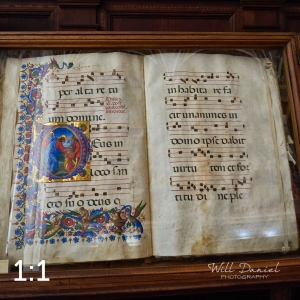 per al ta re tu
um domine.
DEus in
loco san
cto suo deus q
in habita re fa
cit unanimes in
domo ipse dabit
virtu tem et for
titu di ne ple
1:1
Will Daniel
PHOTOGRAPHY